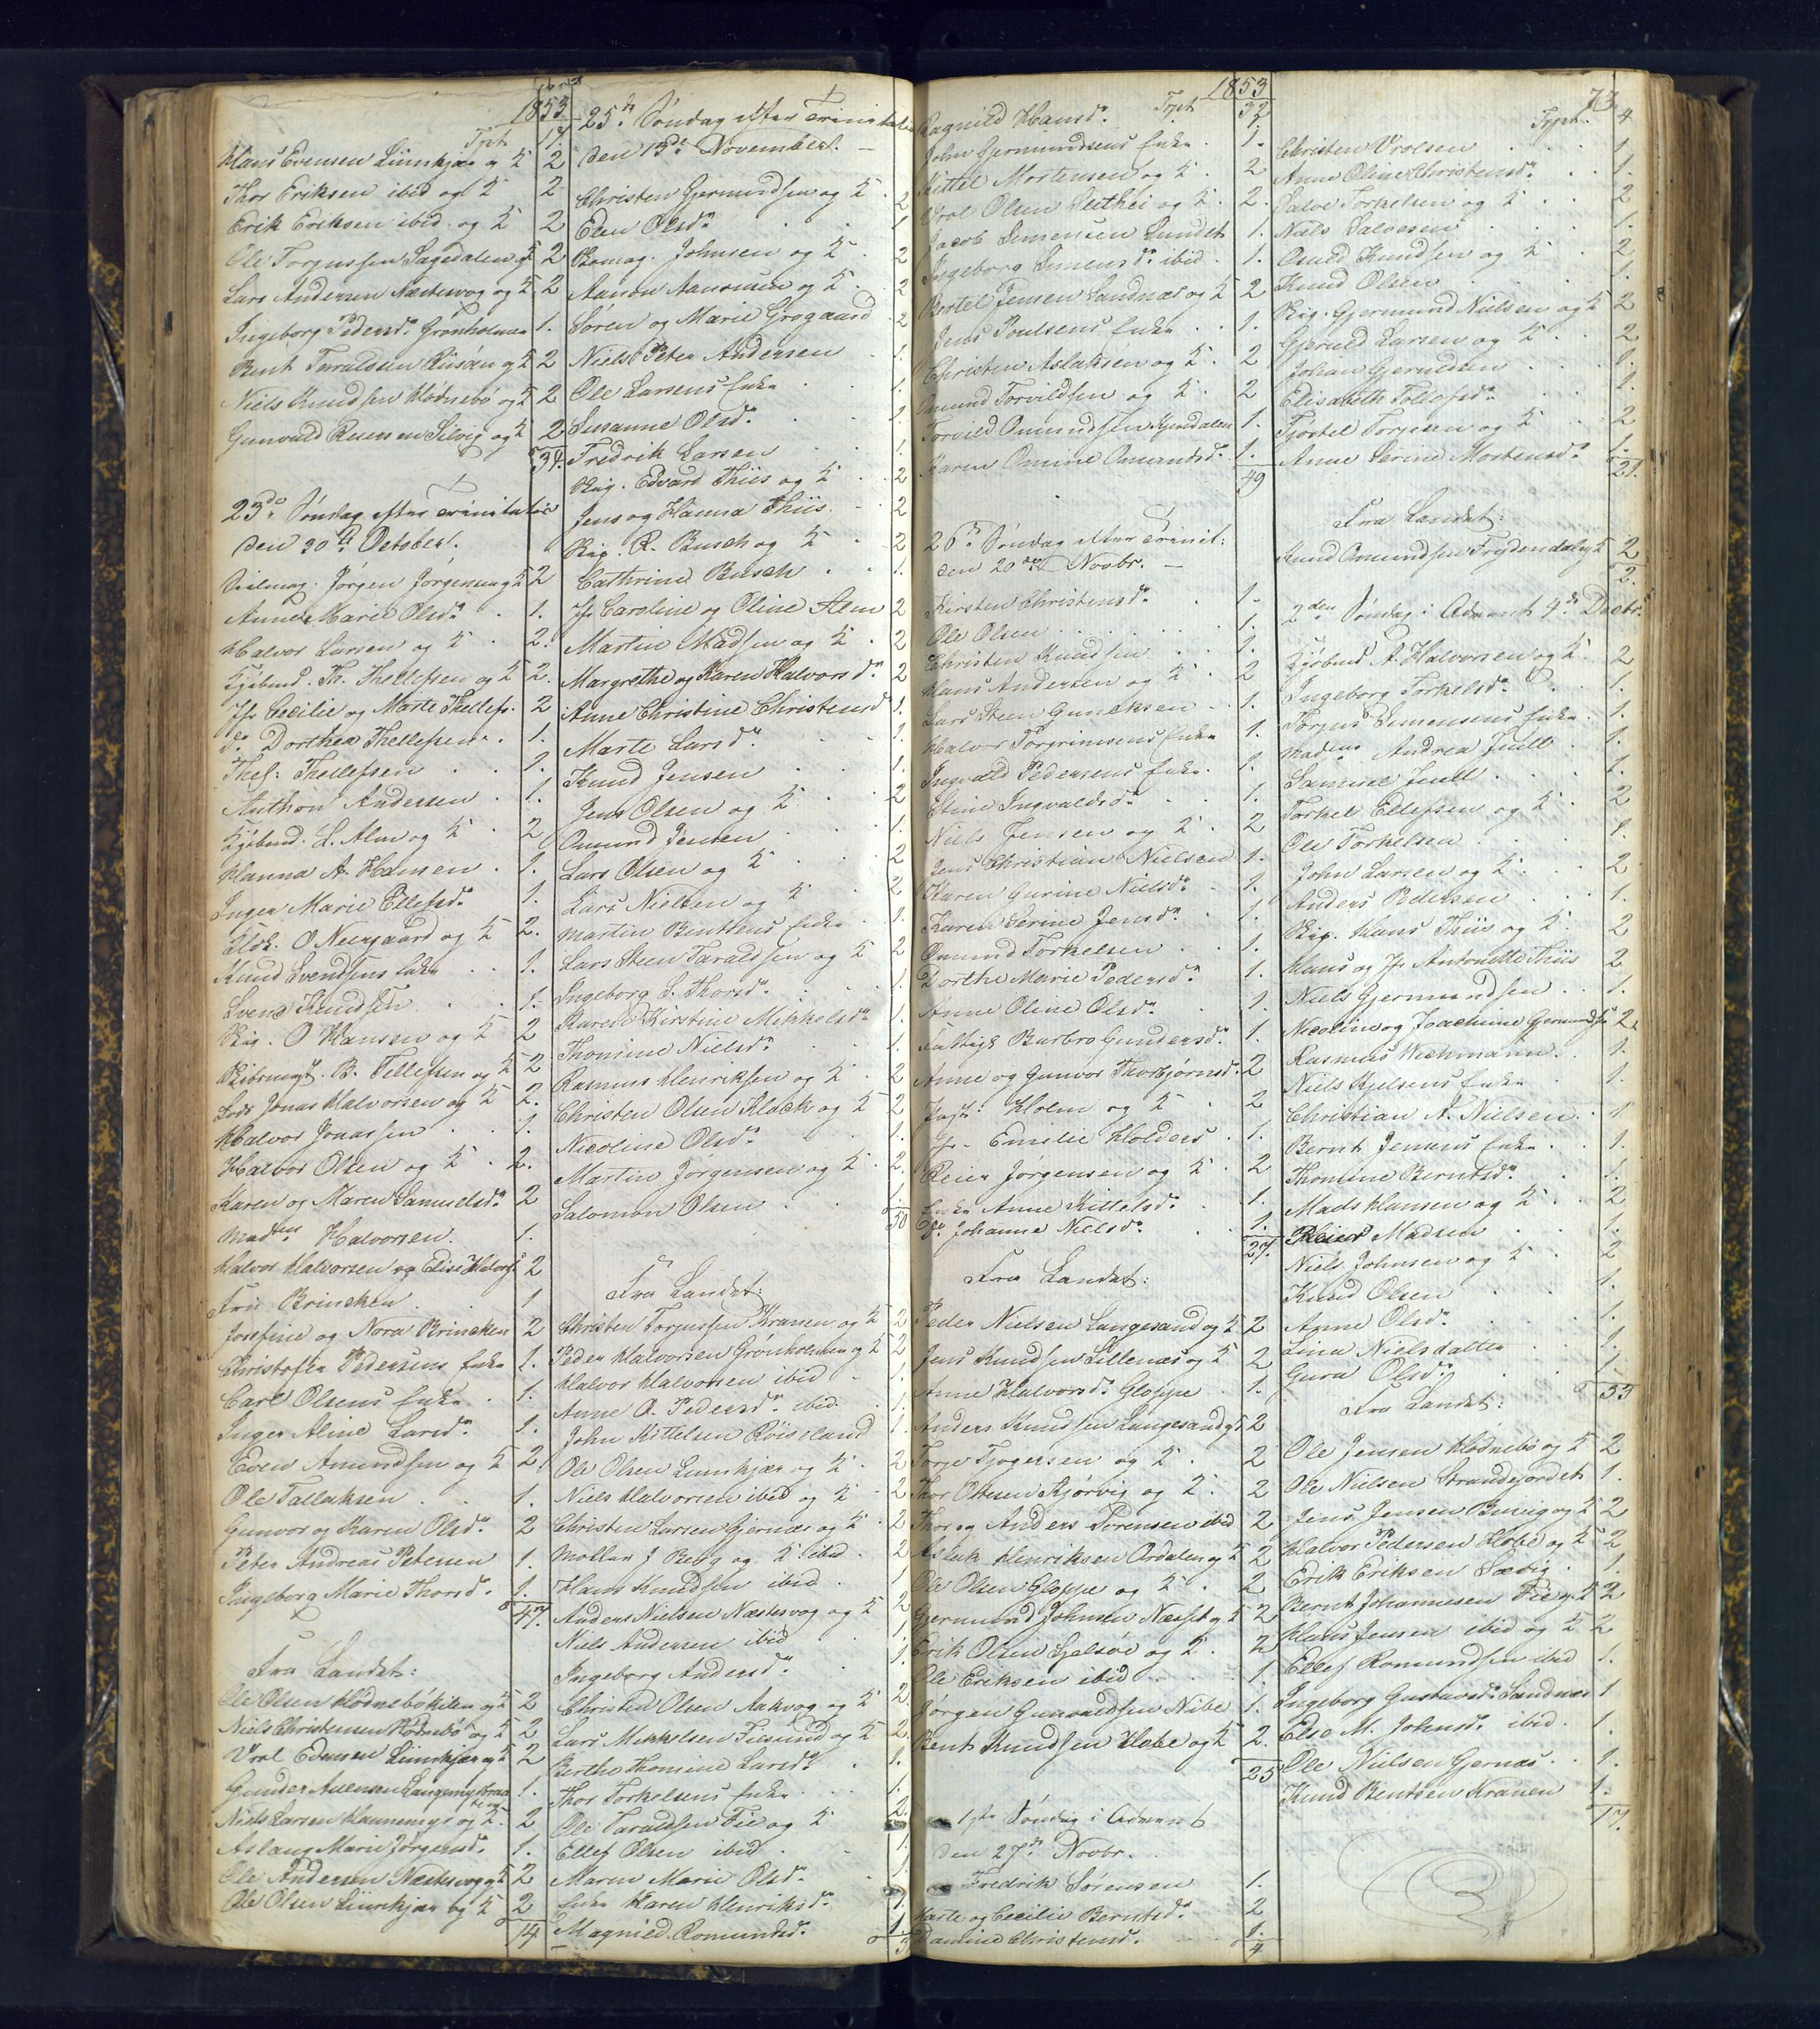 1853
Trpt 17
Hans Evensen Liinskjær og K 2
Thor Eriksen ibid og K 2
Erik Eriksen ibid og K 2
Ole Torjussen Sagedalen og K 2
Lars Andersen Næstesvog og K 2
Ingeborg Pedersd. Grønholmen 1.
Bent Taraldsen Riisøen og K 2
Niels Knudsen Hødnebø og K 2
Gunvald Reiersen Silvig og K 2
34.
23de Søndag efter Trinitatis
den 30te October.
Jørgen Jørgensen og K 2
Anne Marie Olsd. 1.
Halvor Larsen og K 2.
Kjøbmd. Th. Thellefsen og K 2.
Jfr Cecilie og Marte Thellefs. 2
do Dorthea Thellefsen. 1.
Thel: Thellefsen 1.
Anthon Andersen 1.
Kjøbmd. L. Alm og K 2
Hanna A. Hansen 1.
Inger Marie Ellefsd. 1.
O Neergaard og K 2.
Knud Svendsens Enke 1.
Svend Knudsen 1.
Skip. O Hansen og K 2
B. Tellefsen og K 2
Lods Jonas Halvorsen og K 2.
Halvor Jonassen 1.
Halvor Olsen og K 2.
Karen og Maren Samuelsd. 2
Madm Halvorsen. 1.
Halvor Halvorsen og Elise Halvors. 2
Fru Brincken 1
Josefine og Nora Brincken 2
Christoffer Pedersens Enke 1.
Carl Olsens Enke 1.
Inger Aline Larsd. 1.
Even Amundsen og K 2
Ole Tallaksen 1.
Gunvor og Karen Olsd. 2
Peter Andreas Petersen 1.
Ingeborg Marie Thorsd. 1.
47.
Fra Landet:
Ole Olsen Hødnebøkilen og K 2
Niels Christensen Hødnebø og K 2
Vrol Edvensen Liinskjær og K 2
Gunder Auensen 1.
Niels Larsen Hannemyr og K. 2
Aslaug Marie Jørgensd. 1.
Ole Andersen Næstesvog og K 2
Ole Olsen Liinskjær og K 2
14
25de Søndag efter Trinitatis
den 13de November.
Christen Gjermundsen og K 2
Elen Olsd. 1
Skomag. Johnsen og K 2
Aanon Aanonsen og K 2
Søren og Marie Grogaard 2
Niels Peter Andersen 1.
Ole Larsens Enke 1.
Susanne Olsd. 1
Fredrik Larsen 1.
Skip. Edvard Thiis og K 2
Jens og Hanna Thiis. 2
Skip. R. Busch og K 2
Cathrine Busch 1.
Jfr Caroline og Oline Alm 2
Martin Madsen og K 2
Margrethe og Karen Halvorsd. 2
Anne Christine Christensd 1.
Marte Larsd. 1.
Knud Jensen 1.
Jens Olsen og K 2
Omund Jensen 1.
Lars Olsen og K 2
Lars Nielsen og K 2
Martin Benthens Enke 1.
Lars Steen Taraldsen og K 2
Ingeborg S. Thorsd. 1.
Karen Kirstine Mikkelsd. 1.
Thomine Nielsd. 1.
Rasmus Henriksen og K 2
Christen Olsen Klock og K 2
Nicoline Olsd. 1.
Martin Jørgensen og K 2.
Salomon Olsen 1.
50
Fra Landet:
Christen Torjussen Kranen og K 2
Peder Halvorsen Grønholmen og K 2
Halvor Halvorsen ibid 1.
Anne O. Pedersd. ibid. 1.
John Kittelsen Röiseland 1.
Ole Olsen Lunskjær og K 2
Niels Halvorsen ibid og K 2
Christen Larsen Gjernæs og K 2
Møller J Berg og K ibid. 2
Hans Knudsen ibid. 1
Anders Nielsen Næstesvog og K 2
Niels Andersen ibid 1.
Ingeborg Andersd. 1.
Christen Olsen Aakvog og K 2.
Lars Mikkelsen Fiesund og K 2.
Berthe Thomine Larsd. 1.
Thor Torkelsens Enke 1.
Ole Taraldsen Fie og K 2.
Ellef Olsen ibid 1.
Maren Marie Olsd. 1
Enke Karen Henriksd. 1.
Magnild Romundsd. 1.
1853
Trpt 32
Ragnild Hansd. 1.
John Gjermundsens Enke 1.
Kittel Mortensen og K 2
Vrol Olsen Leithei og K 2.
Jacob Simensen Lundet 1.
Ingeborg Simensd. ibid 1.
Bertel Jensen Sandnæs og K 2
Jens Poulsens Enke 1.
Christen Aslaksen og K 2
Omund Torvildsen og K 2
Torvild Omundsen 1.
Karen Omine Omundsd. 1.
49
26de Søndag efter Trinit:
den 20de Novbr.
Kirsten Christensd. 1.
Ole Olsen 1.
Christen Knudsen 1.
Hans Andersen og K 2
Lars Steen Gundersen 1.
Halvor Torgrimsens Enke 1.
Ingvald Pedersens Enke 1.
Stine Ingvaldsd. 1.
Niels Jensen og K 2
Jens Christian Nielsen 1.
Karen Gurine Nielsd. 1.
Karen Serine Jensd. 1.
Omund Torkelsen 1.
Dorthe Marie Pedersd. 1.
Anne Oline Olsd. 1
Barbro Gundersd. 1.
Anne og Gunvor Thorbjørnsd. 2
Holm og K 2
Jfr. Emilie Holders 1.
Reier Jørgensen og K 2
Enke Anne Kittelsd. 1.
do. Johanne Nielsd. 1.
27.
Fra Landet:
Peder Nielsen Langesand og K 2
Jens Knudsen Lillenæs og K 2
Anne Halvorsd. Gloppe 1.
Anders Knudsen Langesand og K 2
Torje Tjøgersen og K 2
Thor Ottesen Kjørvig og K 2
Thor og Anders Sørensen ibid 2
Aslak Henriksen Ordalen og K 2
Ole Olsen Gloppe og K 2
Gjermund Johnsen Næsset og K 2
Erik Olsen Gjelsøe og K 2
Ole Eriksen ibid 1.
Jørgen Gunvaldsen Nibe 1.
Bent Knudsen Hobe og K 2.
25
1ste Søndag i Advent
den 27de Novbr.
Fredrik Sørensen 1.
Marte og Cecilie Berntsd. 2
Christensd. 1.
4
73.
Trpt. 4
Christen Vrolsen 1.
Anne Oline Christensd. 1.
Salve Torkelsen og K 2
Niels Salvesen 1.
Osuld Knudsen og K 2
Knud Olsen 1.
Skip. Gjermund Nielsen og K 2
Gjeruld Larsen og K 2
Johan Gjeruldsen 1.
Elisabeth Tollofsd. 1.
Tjøstel Torjesen og K 2
Anne Serine Mortensd. 1.
21.
Fra Landet:
Knud Omundsen Frydendal og K 2
2.
2den Søndag i Advent 4de Decbr.
Kjøbmd A. Halvorsen og K 2
Ingeborg Torkelsd. 1.
Torjus Simensens Enke 1.
Madme Andrea Juell 1.
Samuel Juell 1.
Torkel Ellefsen og K 2
Ole Torkelsen 1.
John Larsen og K 2
Anders Pedersen 1.
Skip. Hans Thiis og K 2
Hans og Jfr Antonette Thiis 2
Niels Gjermundsen 1.
Nicoline og Joachime Gjermundsd. 2.
Rasmus Wichmann. 1.
Niels Kjelsens Enke 1.
Christian A. Nielsen 1
Bernt Jensens Enke 1.
Thomine Berntsd. 1.
Mads Hansen og K 2
Reier Madsen 1.
Niels Johnsen og K 2
Knud Olsen 1.
Anne Olsd. 1.
Lina Nielsdatter 1.
Gura Olsd. 1.
33
Fra Landet:
Ole Jensen Hødnebø og K 2
Ole Nielsen Strandejordet 1.
Jens Jensen Buvig og K 2
Halvor Pedersen Hobe og K 2
Erik Eriksen Sævig 1.
Bernt Johannesen Fie og K 2
Hans Jensen ibid og K 2
Ellef Romundsen ibid 1.
Ingeborg Gustavsd. Sandnæs 1
Else M. Johnsd. ibid. 1.
Ole Nielsen Gjernæs 1.
Knud Bentsen Kranen 1.
17.